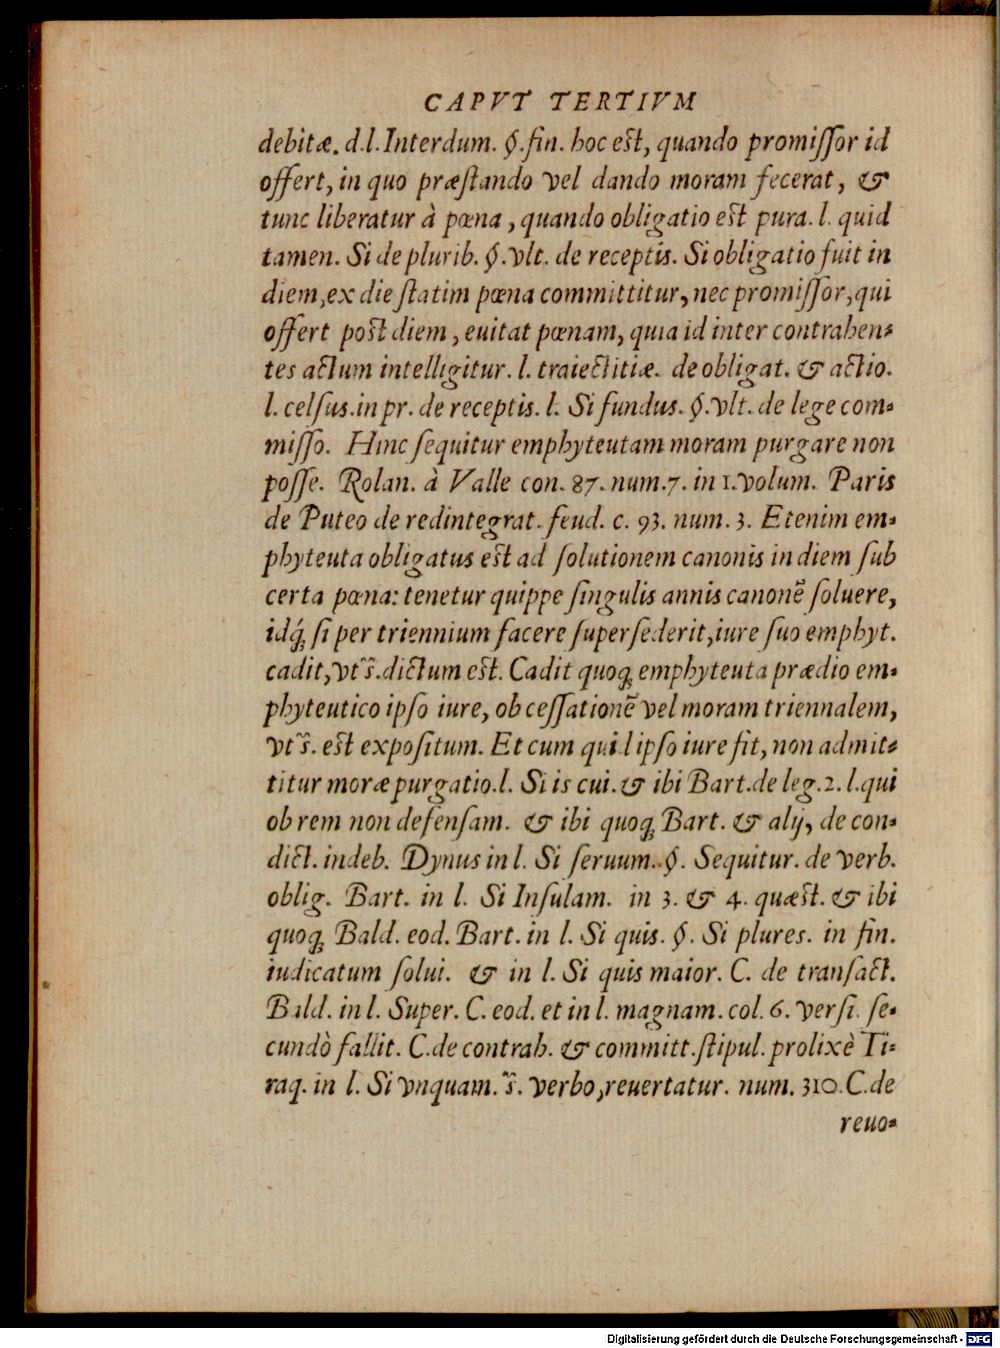 CAPVT TERTIVM
debitæ. d.l. Interdum. §. fin. hoc est, quando promiſſor id
offert, in quo præſtando vel dando moram fecerat, &
tunc liberatur à pœna, quando obligatio est pura. l. quid
tamen. Si de plurib. §. vlt. de receptis. Si obligatio fuit in
diem, ex die ſtatim pœna committitur, nec promiſſor, qui
offert post diem, euitat pœnam, quia id inter contrahen-
tes actum intelligitur. l. traiectitiæ. de obligat. & actio.
l. celſus. in pr. de receptis. l. Si fundus. §. vlt. de lege com-
miſſo. Hinc ſequitur emphyteutam moram purgare non
poſſe. Rolan. à Valle con. 87. num. 7. in 1. volum. Paris
de Puteo de redintegrat. feud. c. 93. num. 3. Etenim em-
phyteuta obligatus est ad ſolutionem canonis in diem ſub
certa pœna: tenetur quippe ſingulis annis canonē ſoluere,
idq́ꝫ ſi per triennium facere ſuperſederit, iure ſuo emphyt.
cadit, vt s̃. dictum est. Cadit quoqꝫ emphyteuta prædio em-
phyteutico ipſo iure, ob ceſſationē vel moram triennalem,
vt s̃. est expoſitum. Et cum quid ipſo iure fit, non admit-
titur moræ purgatio. l. Si is cui. & ibi Bart. de leg. 2. l. qui
ob rem non defenſam. & ibi quoqꝫ Bart. & alij, de con-
dict. indeb. Dynus in l. Si ſeruum. §. Sequitur. de verb.
oblig. Bart. in l. Si Inſulam. in 3. & 4. quæst. & ibi
quoqꝫ Bald. eod. Bart. in l. Si quis. §. Si plures. in fin.
iudicatum ſolui. & in l. Si quis maior. C. de tranſact.
Bald. in l. Super. C. eod. et in l. magnam. col. 6. verſi. ſe-
cundò fallit. C. de contrah. & committ. ſtipul. prolixè Ti-
raq. in l. Si vnquam. s̃. verbo, reuertatur. num. 310. C. de
reuo-
Digitalisierung gefördert durch die Deutsche Forschungsgemeinschaft - DFG